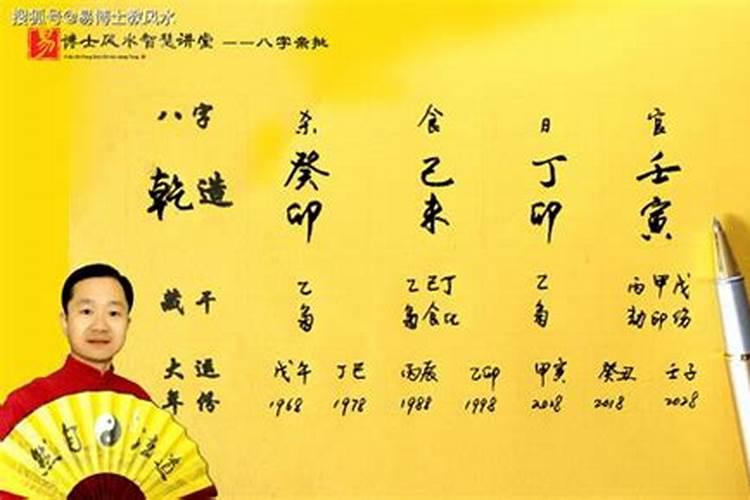 搜狐号@易博士教风水
易 博士风水智慧讲堂 ——八字案批
八字 杀 食 日 官
乾造 癸 己 丁 壬
卯 未 卯 寅
藏干 乙 乙己丁 乙 丙甲戊
枭 枭食比 枭 劫印伤
大运 戊午 丁巳 丙辰 乙卯 甲寅 癸丑 壬子
年份 1968 1978 1988 1998 2018 2028
自 道